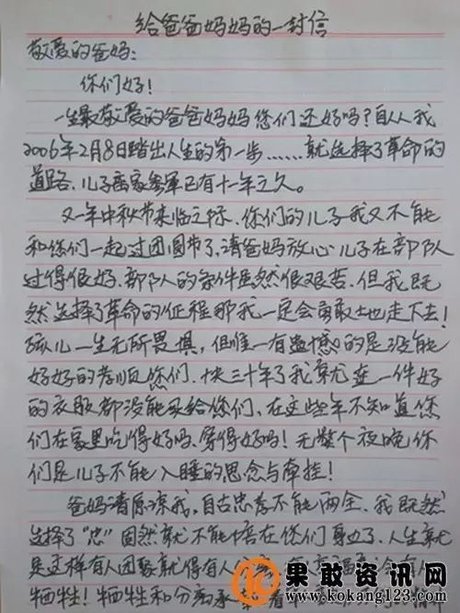 给爸爸妈妈的一封信
敬爱的爸妈:
你们好!
一生最敬爱的爸爸妈妈您们还好吗?自从我
2006年2月8日踏出人生的第一步……就选择了革命的
道路、儿子离家参军已有十一年之久。
又一年中秋节来临之际、你们的儿子我又不能
和您们一起过团圆节了、请爸妈放心儿子在部队
过得很好、部队的条件虽然很艰苦、但我既
然选择了革命的征程那我一定会勇敢土地走下去!
孩儿一生无所畏惧、但惟一有遗憾的是没能
好好的孝顺您们、快三十年了我就连一件好
的衣服都没能买给你们、在这些年不知道您
们在家里吃得好吗、穿得好吗!无数个夜晚你
们是儿子不能入睡的思念与牵挂!
爸妈请原谅我,自古忠孝不能两全、我既然
选择了“忠”固然就不能陪在你们身边了、人生就
是这样有人团聚就得有人
牺牲!牺牲和分离
果敢资讯网
www.kokang123.com